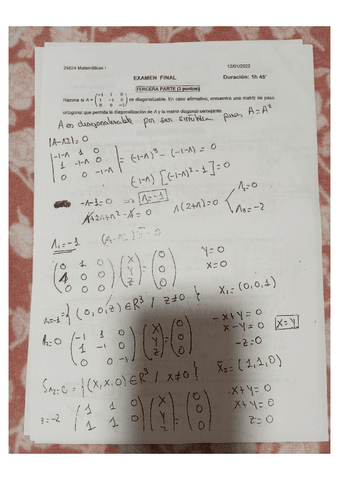 2MI24 Matemáticas I 12/01/2022
EXAMEN FINAL Duración: 1h 45'
TERCERA PARTE (3 puntos)
Razona si A = (-1 1 0; 1 -1 0; 0 0 -1) es diagonalizable. En caso afirmativo, encuentra una matriz de paso
ortogonal que permita la diagonalización de A y la matriz diagonal semejante.
A es diagonalizable por ser simétrica pues A = Aᵗ
|A-λI| = 0
|-1-λ 1 0; 1 -1-λ 0; 0 0 -1-λ| = (-1-λ)³ - (-1-λ) = 0
(-1-λ) [(-1-λ)² - 1] = 0
-λ-1=0 ⇒ λ=-1
1+2λ+λ²-1=0 λ(2+λ)=0 λ₂=0
λ₃=-2
λ₁=-1 (A-λI) = 0
(0 1 0; 1 0 0; 0 0 0) (x; y; z) = (0; 0; 0) y=0
x=0
λ=-1 = {(0,0,z) ∈ ℝ³ / z≠0} x₁=(0,0,1)
λ₂=0 (-1 1 0; 1 -1 0; 0 0 -1) (x; y; z) = (0; 0; 0) -x+y=0
x-y=0 x=y
-z=0
Sλ₂=0 = {(x,x,0) ∈ ℝ³ / x≠0} x₂=(1,1,0)
3=-2 (1 1 0; 1 1 0 (x; y; z) = (0; 0; 0) x+y=0
x+y=0
z=0